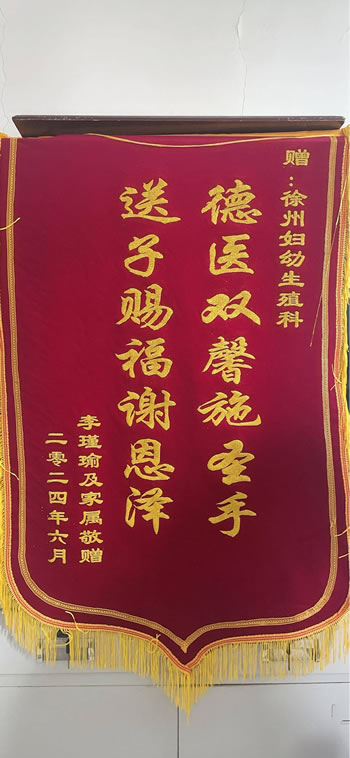 赠：徐州妇幼生殖科
德医双馨施圣手
送子赐福谢恩泽
李瑾瑜及家属敬赠
二零二四年六月